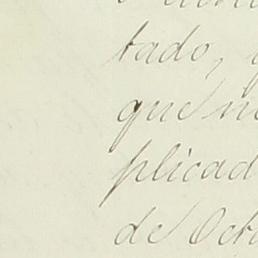 tado,
que
plicad
de Oct